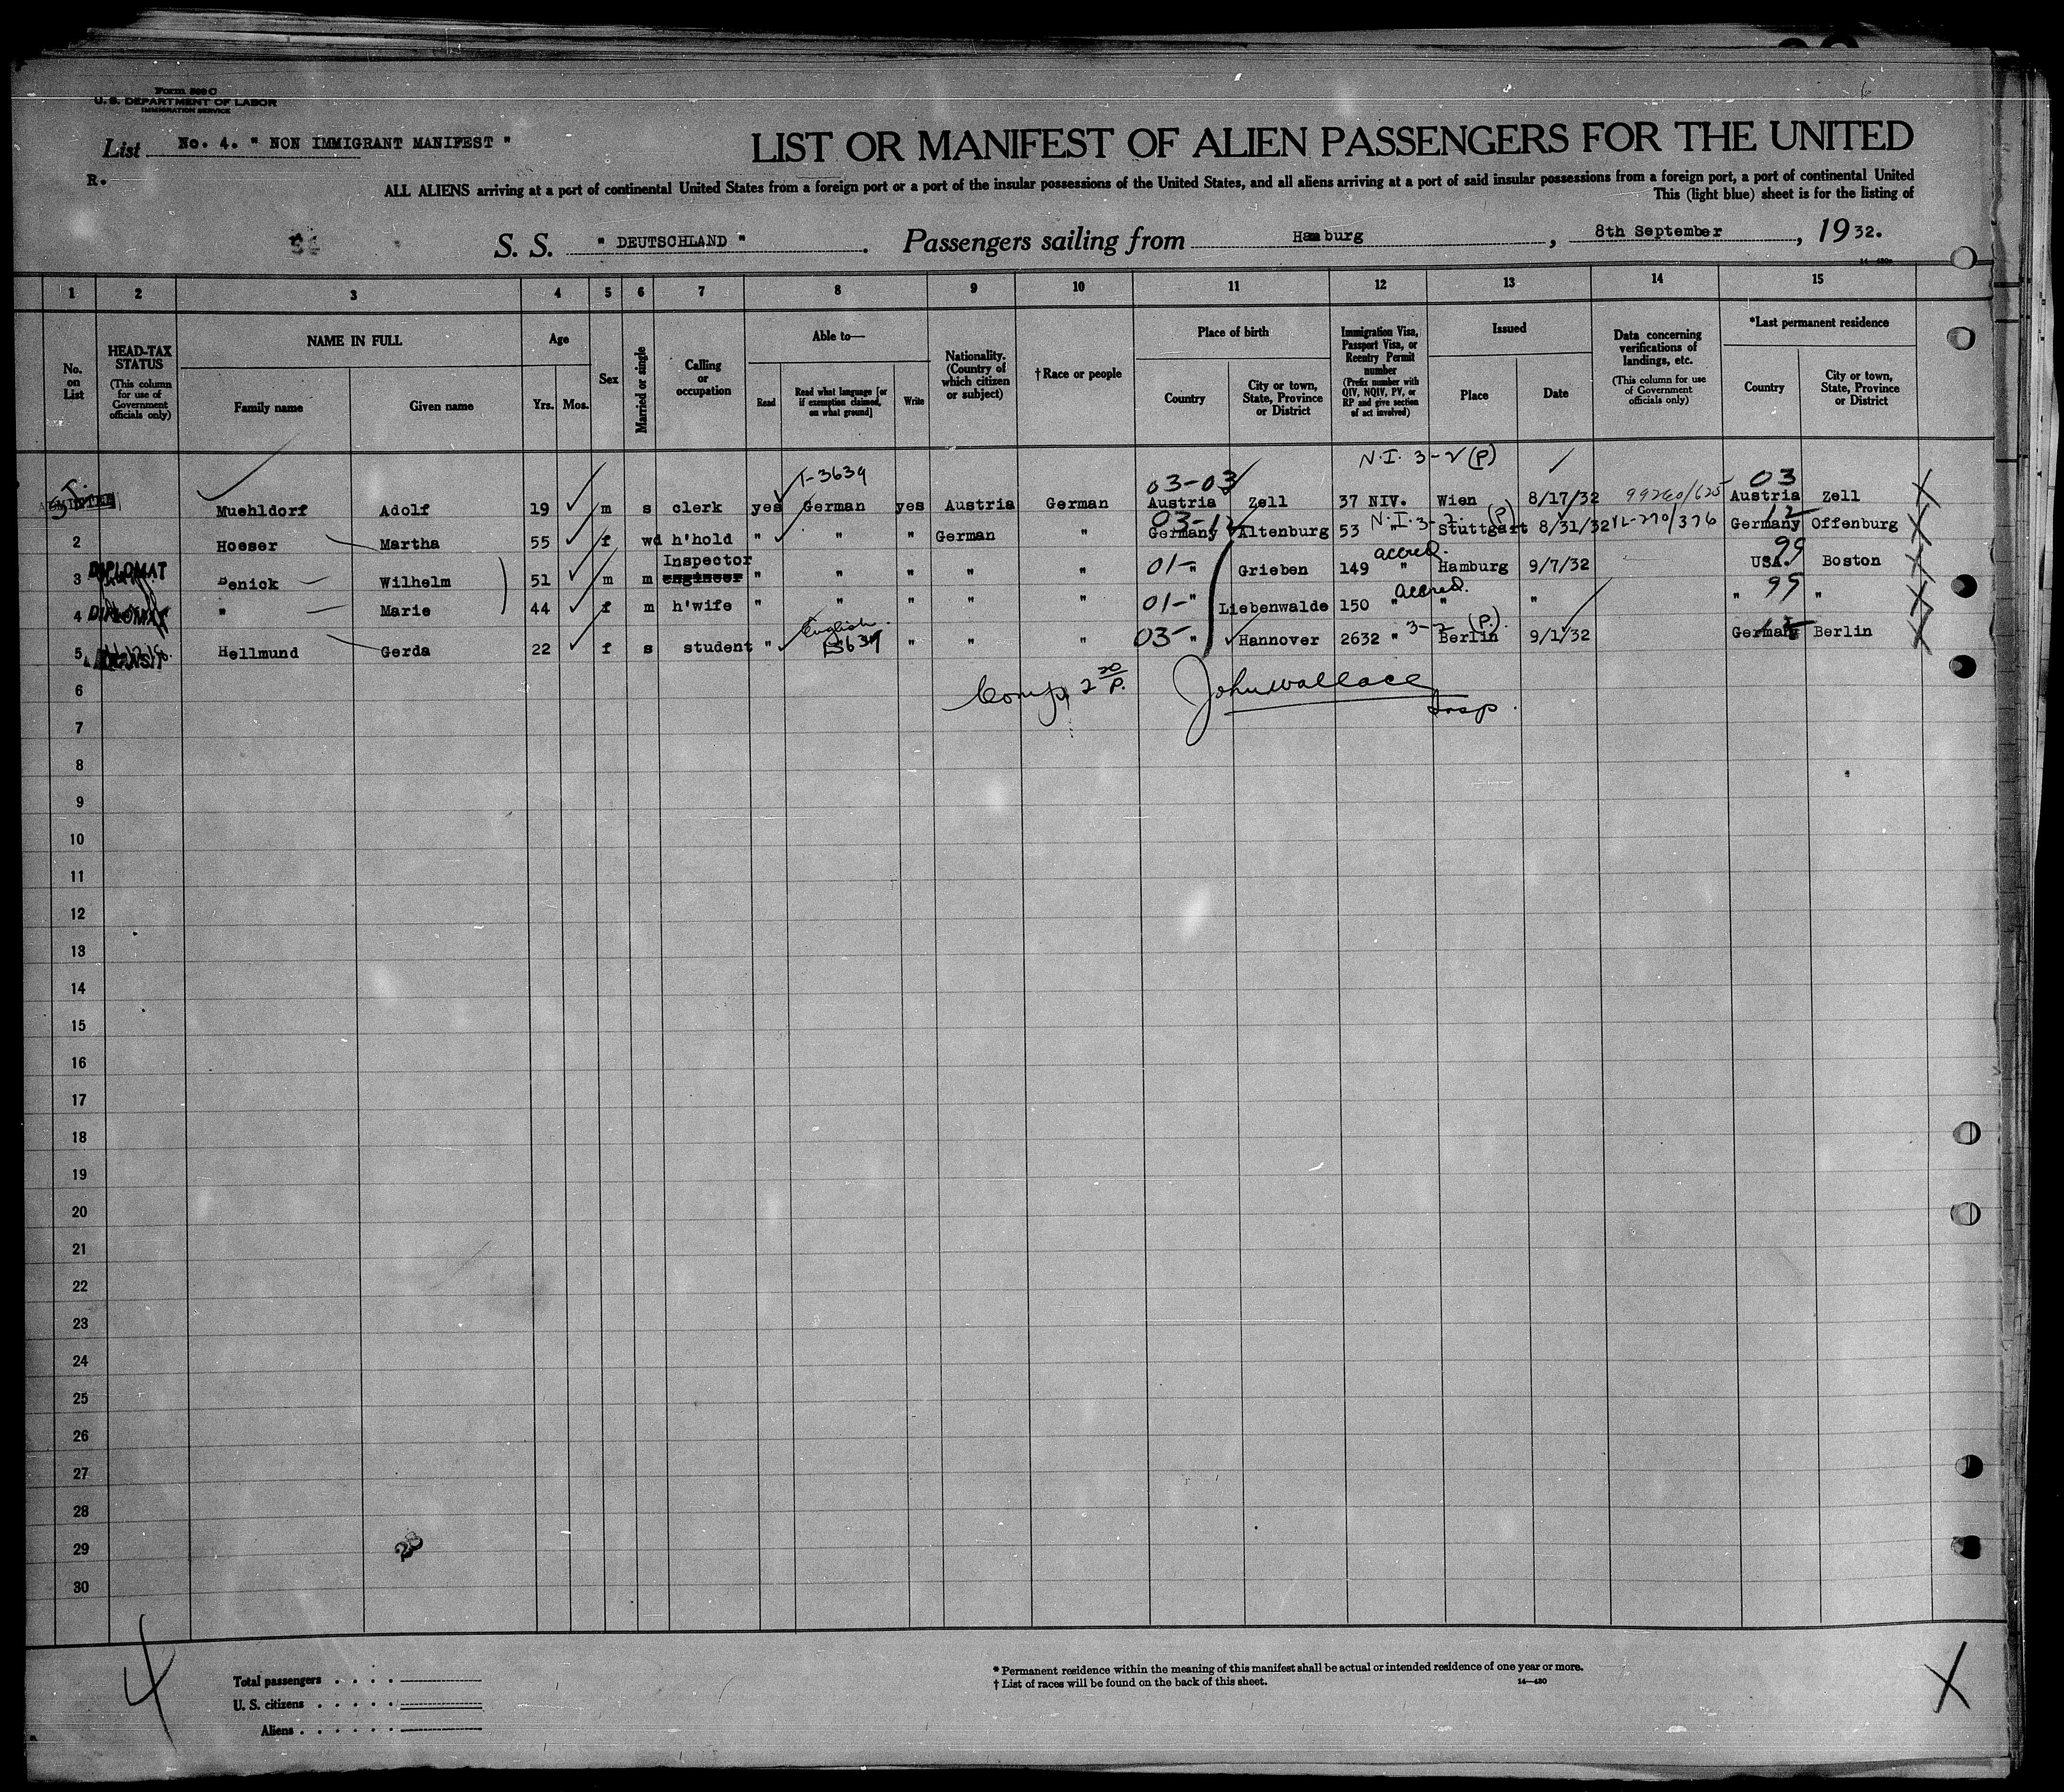 Form 500 C
U. S. DEPARTMENT OF LABOR
IMMIGRATION SERVICE
List No. 4. " NON IMMIGRANT MANIFEST "
R.
LIST OR MANIFEST OF ALIEN PASSENGERS FOR THE UNITED
ALL ALIENS arriving at a port of continental United States from a foreign port or a port of the insular possessions of the United States, and all aliens arriving at a port of said insular possessions from a foreign port, a port of continental United
This (light blue) sheet is for the listing of
S. S. " DEUTSCHLAND " . Passengers sailing from Hamburg , 8th September , 1932.
1 2 3 4 5 6 7 8 9 10 11 12 13 14 15
No. on List
HEAD-TAX STATUS (This column for use of Government officials only)
NAME IN FULL
Family name Given name
Age
Yrs. Mos.
Sex
Married or single
Calling or occupation
Able to—
Read Read what language [or if exemption claimed, on what ground] Write
Nationality. (Country of which citizen or subject)
†Race or people
Place of birth
Country City or town, State, Province or District
Immigration Visa, Passport Visa, or Reentry Permit number (Prefix number with QIV, NQIV, PV, or RP and give section of act involved)
Issued
Place Date
Data concerning verifications of landings, etc. (This column for use of Government officials only)
*Last permanent residence
Country City or town, State, Province or District
N.I. 3-2 (P)
T-3639 03-03 03
Muehldorf Adolf 19 m s clerk yes German yes Austria German Austria Zell 37 NIV. Wien 8/17/32 99260/625 Austria Zell
03-12 N.I. 3-2 (P) 12
2 Hoeser Martha 55 f wd h'hold " " " German " Germany Altenburg 53 " Stuttgart 8/31/32 12-270/376 Germany Offenburg
Inspector accred. 99
3 DIPLOMAT Benick Wilhelm 51 m m engineer " " " " " 01- " Grieben 149 " Hamburg 9/7/32 USA. Boston
accred. 99
4 DIPLOMAT " Marie 44 f m h'wife " " " " " 01- " Liebenwalde 150 " " " " "
English 3-2 (P).
5 TRANSIT Hellmund Gerda 22 f s student " " " " 03- " Hannover 2632 " Berlin 9/1/32 Germany Berlin
6
Comp. 2 30/P. John Wallace
Insp.
7
8
9
10
11
12
13
14
15
16
17
18
19
20
21
22
23
24
25
26
27
28
29
30
28
4
X
Total passengers . . . .
U. S. citizens . . . . .
Aliens . . . . . .
* Permanent residence within the meaning of this manifest shall be actual or intended residence of one year or more.
† List of races will be found on the back of this sheet.
14—430